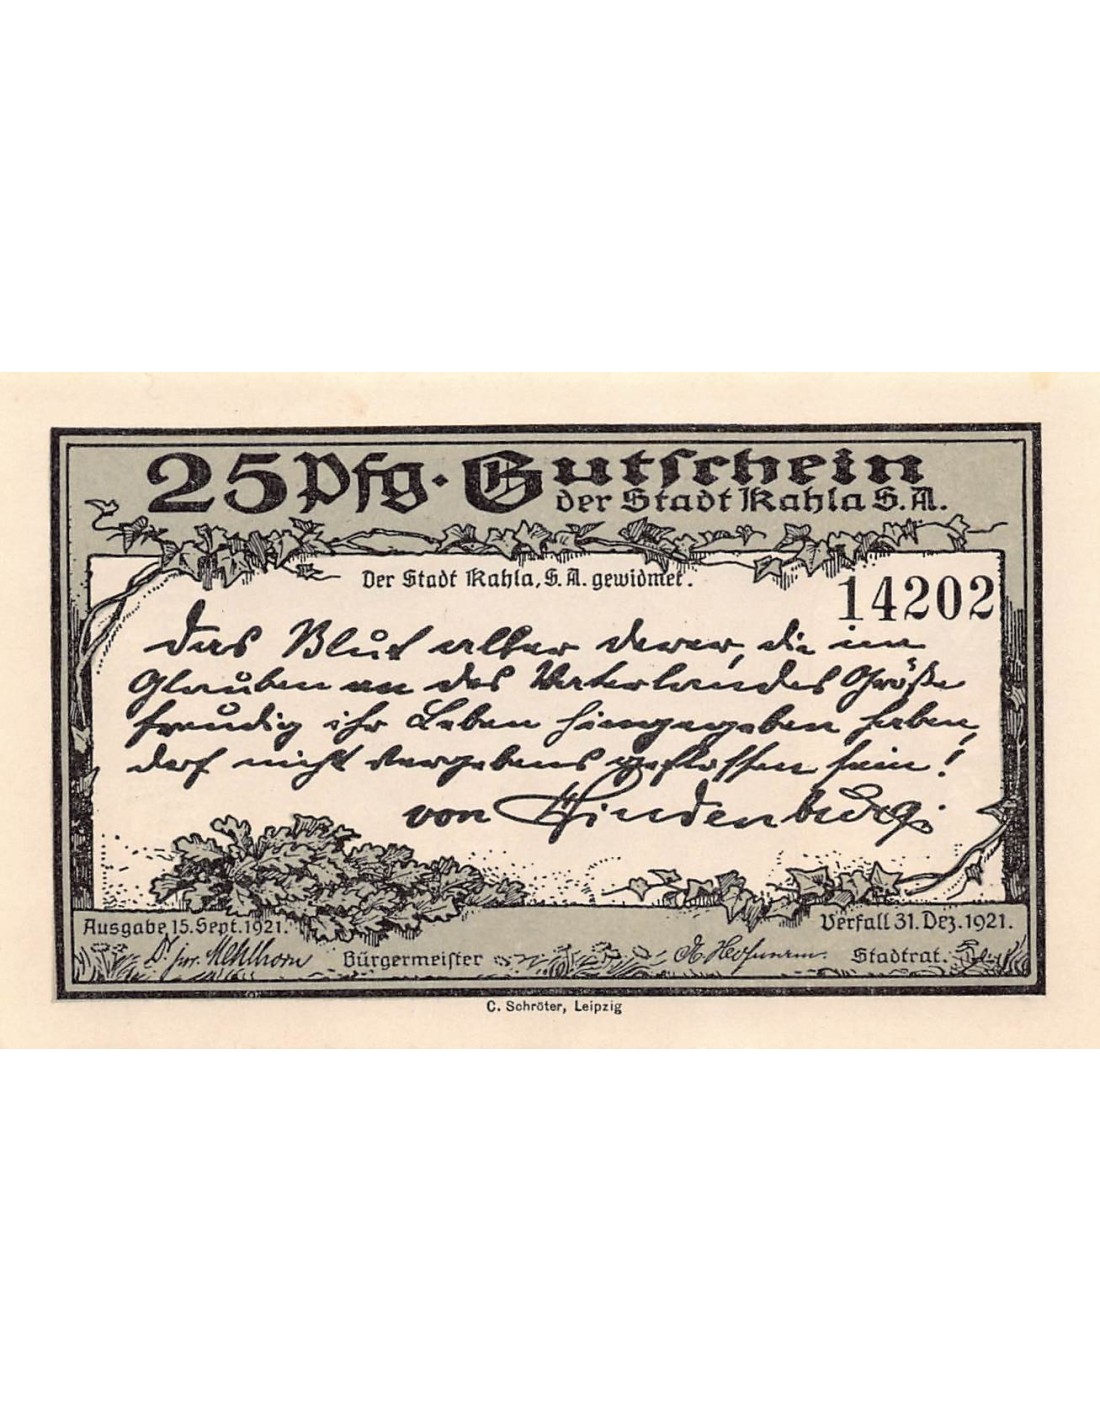 25 Pfg. Gutschein
der Stadt Kahla S. A.
Der Stadt Kahla, S. A. gewidmet.
14202
Das Blut aller derer, die im
Glauben an des Vaterlandes Größe
freudig ihr Leben hingegeben haben,
darf nicht vergebens geflossen sein!
von Hindenburg.
Ausgabe 15. Sept. 1921.
Verfall 31. Dez. 1921.
Dr jur. Mehlhorn Bürgermeister
Stadtrat.
C. Schröter, Leipzig